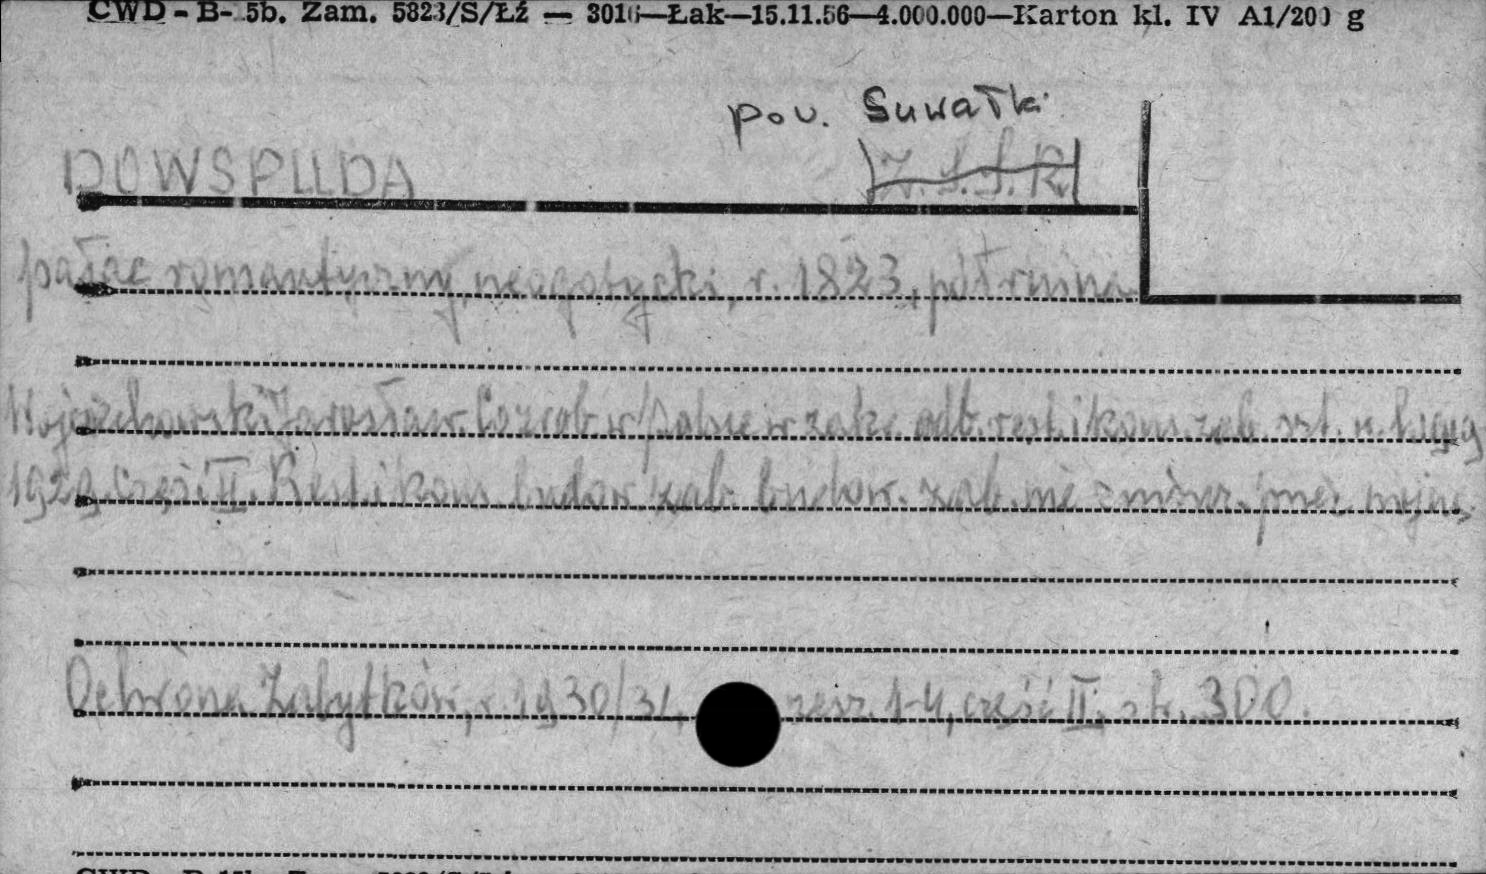 CWD - B- 5b. Zam. 5823/S/Łź — 3016—Łak—15.11.56—4.000.000—Karton kl. IV A1/200 g
pow. Suwałki
DOWSPUDA
Z.S.S.R.
pałac romantyczny, neogotycki, r. 1823, pół ruina
Wojciechowski Jarosław. Co zrob. w Polsce w zakr. odb. rest. i kons. zab. szt. w.
1929 Część II. Rest. i kons. budow. zab. budow. zab. nie zniszcz. przez wojnę,
Ochrona Zabytków, r. 1930/31, zesz. 1-4, część II, str. 300.